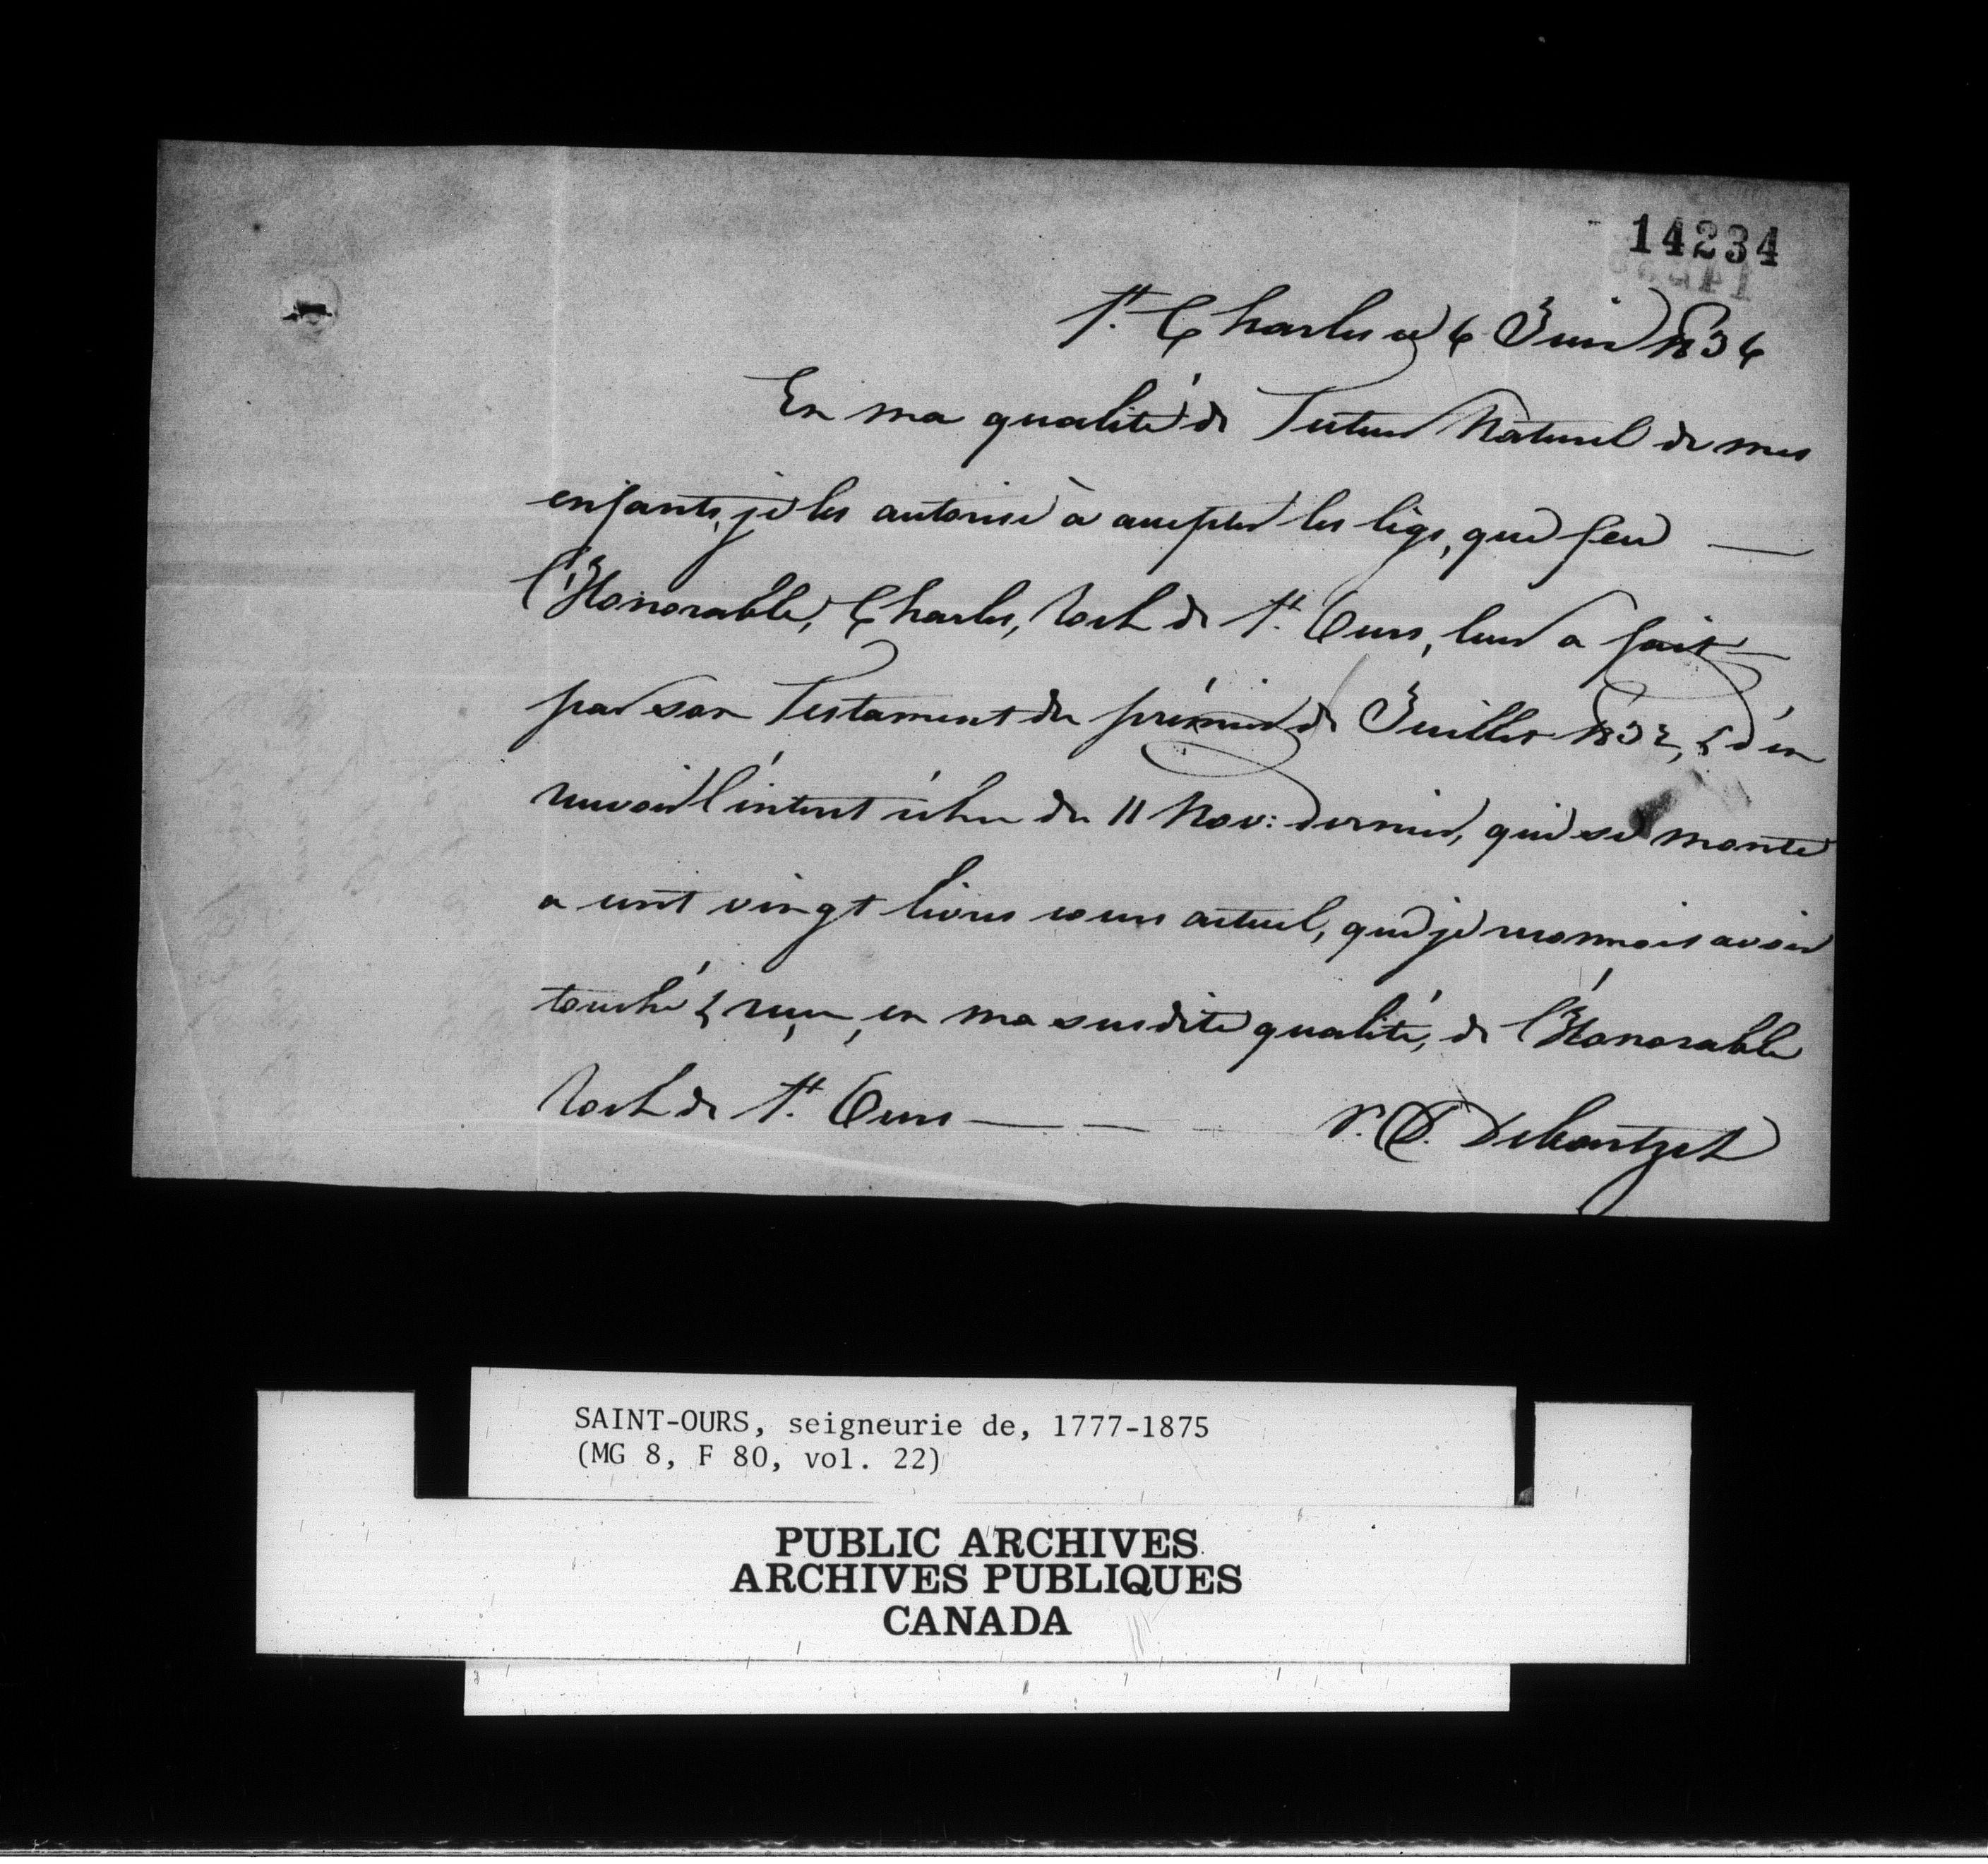 14234
St. Charles ce 6 Juin 1836
En ma qualité de Tuteur Naturel de mes
enfants, je les autorise à accepter les legs, que feu —
l'Honorable, Charles, Roch de St. Ours, leur a fait —
par son Testament du prémier de Juillet 1832, & d'en
recevoir l'intéret échu du 11 Nov: dernier, qui se monte
a cent vingt livres cours actuel, que je reconnais avoir
touché & reçu, en ma susdite qualité, de l'Honorable
Roch de St. Ours — — —
P. D. Debartzch
SAINT-OURS, seigneurie de, 1777-1875
(MG 8, F 80, vol. 22)
PUBLIC ARCHIVES
ARCHIVES PUBLIQUES
CANADA